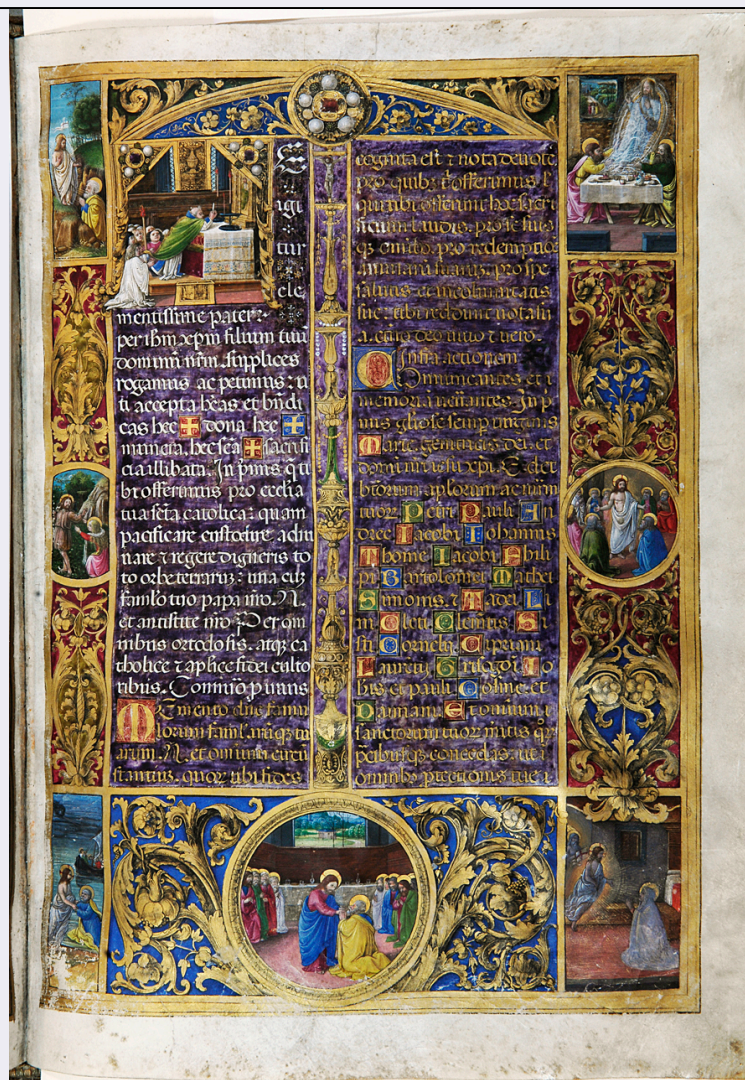 E
igi
tur
cle
mentissime pater:
per ihm xpm filium tuū
dominū nrm. Supplices
rogamus ac petimus: u
ti accepta hēas et bn̄di
cas hec dona hec
munera. hec sca sacrifi
cia illibata. In pmis q̄ ti
bi offerimus pro ecclīa
tua sc̄ta catolica: quam
pacificare custodire adu
nare ⁊ regere digneris to
to orbe terrarū: una cū
famło tuo papa nr̄o. N.
et antistite nr̄o Et om
nibus ortodosis. atq̨ ca
tholice ⁊ aplice fidei culto
ribus. Commō p uiuis
Memento dn̄e famu
lorum famłarūq̨ tu
arum. N. et omniū circū
stantiū. quor̄ tibi fides
cognita est ⁊ nota deuotō
pro quibꝫ tibi offerimus ł
qui tibi offerunt hoc sacri
ficium laudis. pro se suis
qꝫ omībꝫ. pro redemptiōe
animarū suarū: pro spe
salutis et incolumitatis
sue. tibi reddunt uota sū
a. eterno deo uiuo ⁊ uero.
Infra actionem
Communicantes et
memoria uenerantes. In p
mis głiose semp uirginis
Marie genitricis dei. et
domini nr̄i ihu xpi. Et
btorum aplorum ac mr̄m
tuor̄ Petri Pauli An
dree Iacobi Iohannis
Thome Iacobi Phili
pi Bartolomei Mathei
Simonis. ⁊ Tadei Li
ni Cleti Clemētis Si
sti Cornelij Cipriani
Laurētij Grisogōi Io
hīs et pauli Cosme. et
Damiani Et omniuȝ
sanctorum tuor̄ mitis qr̄
pcibusq̨ concedas. ut i
omnibꝫ ptectionis tue